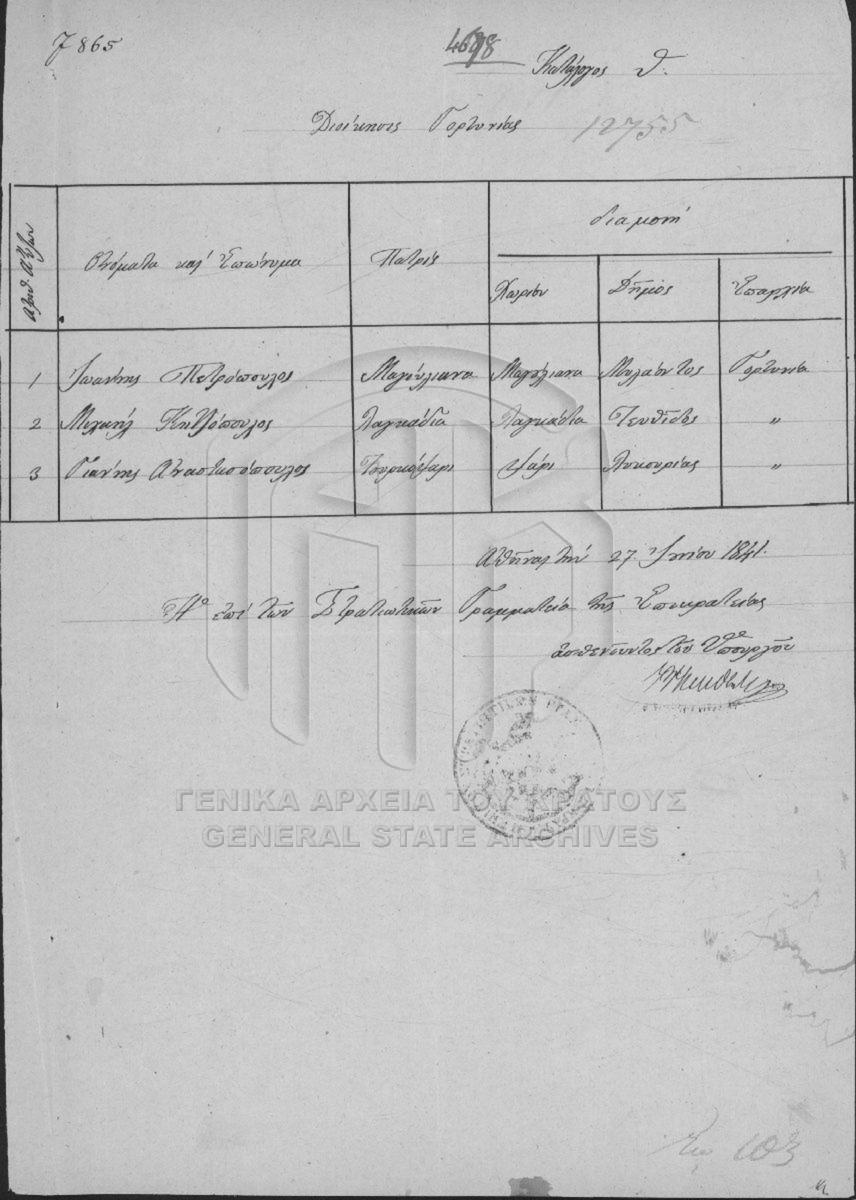 7865
Κατάλογος θ.
Διοίκησις Γορτυνίας 12755
Αριθ. Αύξων
Ονόματα και Επώνυμα
Πατρίς
διαμονή
Χωρίον
Δήμος
Επαρχία
1 Ιωάννης Πετρόπουλος Μαγούλιανα Μαγούλιανα Μυλάοντος Γορτυνία
2 Μιχαήλ Λαγκάδια Λαγκάδια Τευθίδος "
3 Γιάννης Αναστασόπουλος Τουρκοψάρι Ψάρι Λυκουρίας "
Αθήναις την 27 Ιουνίου 1841.
Η επί των Στρατιωτικών Γραμματεία της Επικρατείας
ασθενούντος του Υπουργού
ΓΕΝΙΚΑ ΑΡΧΕΙΑ ΤΟΥ ΚΡΑΤΟΥΣ
GENERAL STATE ARCHIVES
103